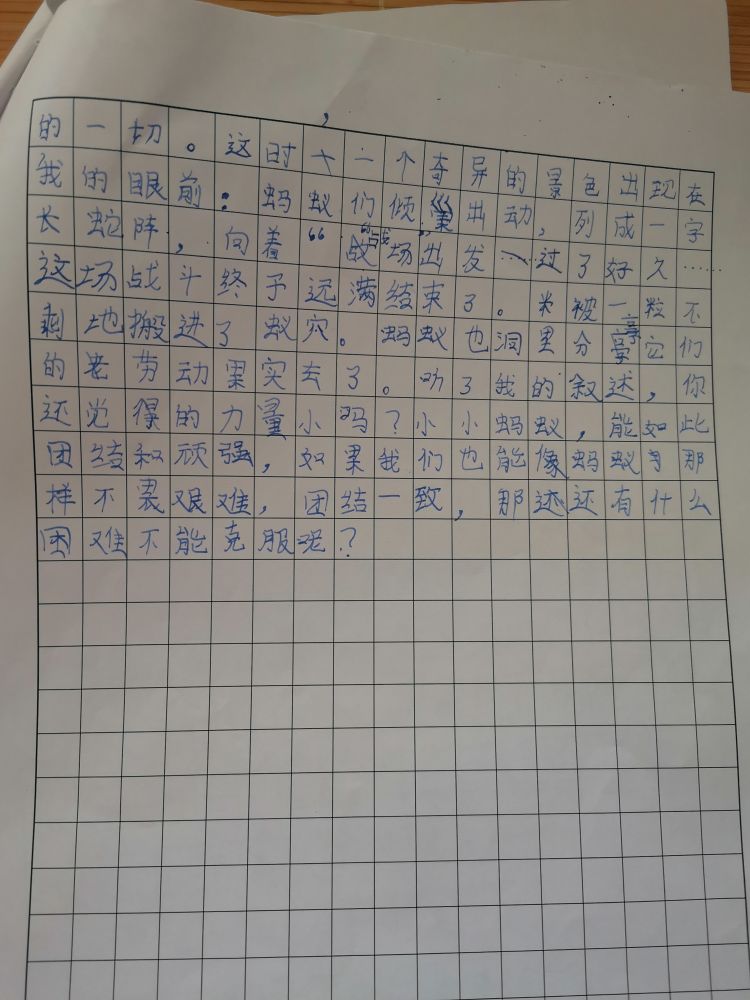 的一切。这时，一个奇异的景色出现在
我的眼前：蚂蚁们倾巢出动，列成一字
长蛇阵，向着“战场出发 过了好久……
这场战斗终于远满结束了。米被一粒不
剩地搬进了蚁穴。蚂蚁也洞里分享它们
的老劳动果实去了。 了我的叙述，你
还觉得的力量小吗？小小蚂蚁，能如此
团结和顽强，如果我们也能像蚂蚁 那
样不畏艰难，团结一致，那还有什么
困难不能克服呢？